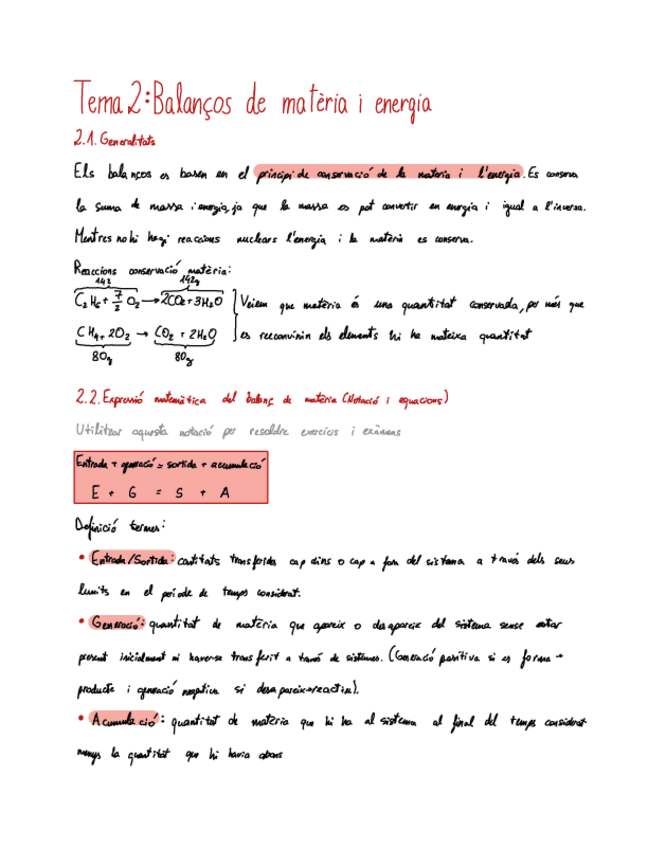 Tema 2: Balanços de matèria i energia
2.1. Generalitats
Els balanços es basen en el principi de conservació de la materia i l'energia. Es conserva
la suma de massa i energia, ja que la massa es pot convertir en energia i igual a l'inversa.
Mentres no hi hagi reaccions nuclears l'energia i la matèria es conserva.
Reaccions conservació matèria:
142 142g
C₂H₆ + 7/2 O₂ → 2CO₂ + 3H₂O Veiem que matèria és una quantitat conservada, per més que
CH₄ + 2O₂ → CO₂ + 2H₂O es reconvinin els elements hi ha mateixa quantitat
80g 80g
2.2. Expressió matemàtica del balanç de matèria (Notació i equacions)
Utilitzar aquesta notació per resoldre exercicis i exàmens
Entrada + generació = sortida + acumulació
E + G = S + A
Definició termes:
• Entrada/Sortida: cantitats transferides cap dins o cap a fora del sistema a través dels seus
limits en el període de temps considerat.
• Generació: quantitat de matèria que apareix o desapareix del sistema sense estar
present inicialment ni haver-se transferit a través de sistemes. (Generació positiva si es forma →
producte i generació negativa si desapareix → reactiu).
• Acumulació: quantitat de matèria que hi ha al sistema al final del temps considerat
menys la quantitat que hi havia abans